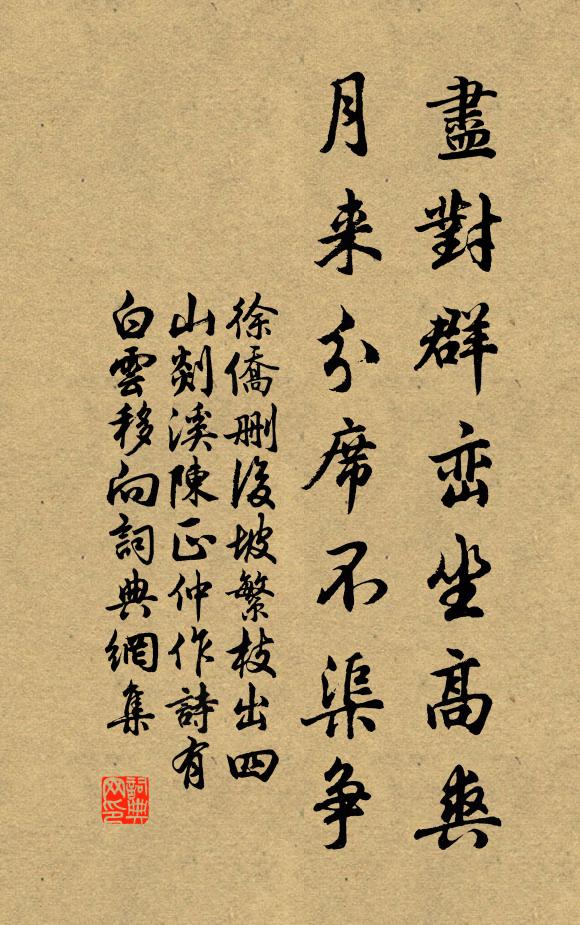 盡對群峦坐高爽
月来分席不渠争
徐僑刪後坡繁枝出四
山剡溪陳正仲作詩有
白雲移向詞典網集
詞典网印